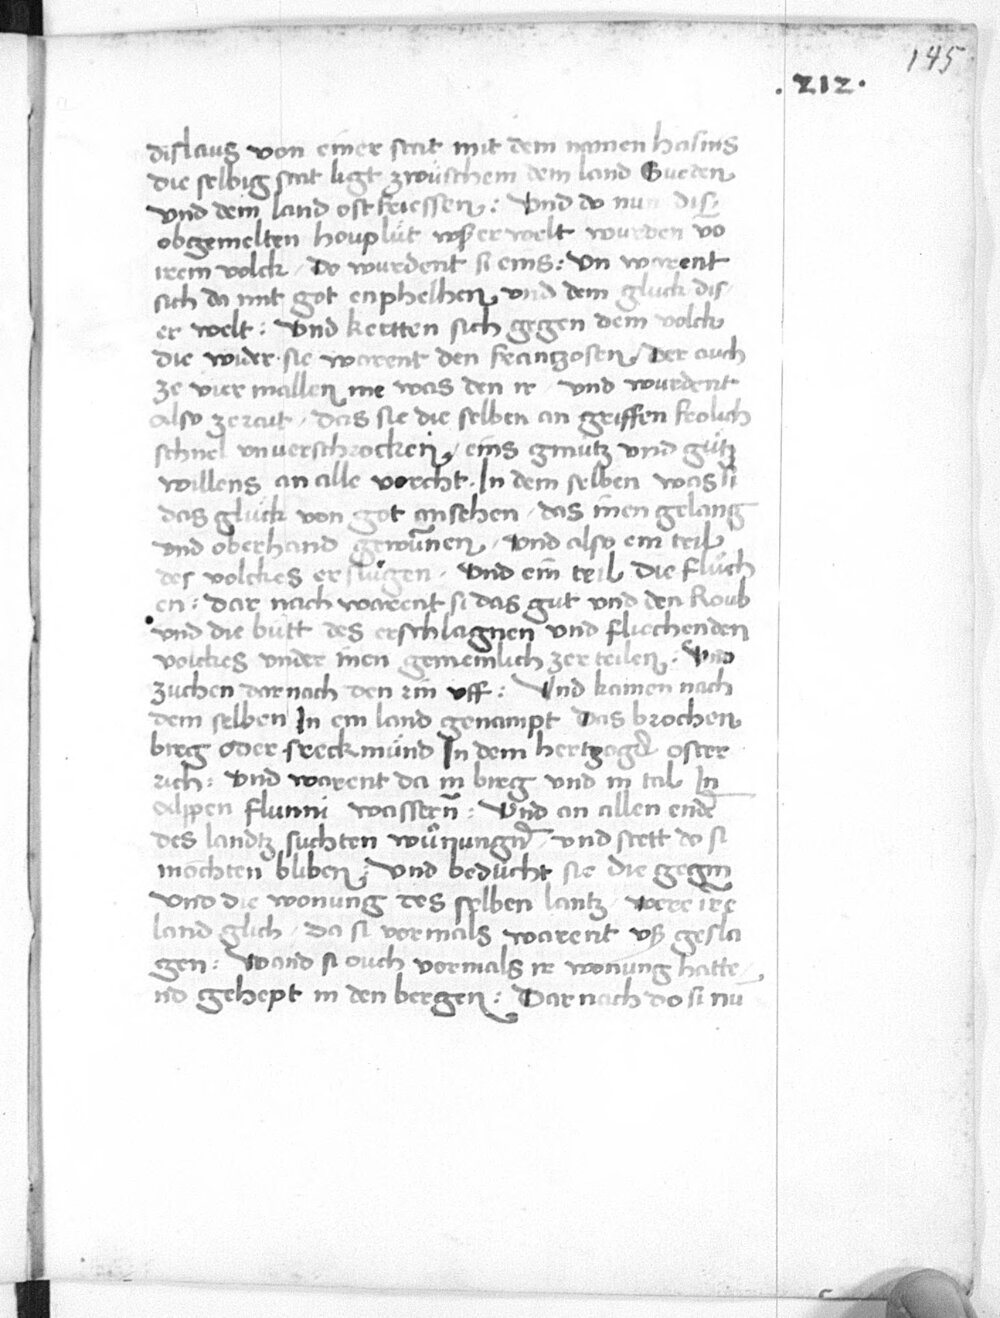 145
. 212 .
dislaus von einer stat mit dem namen hasnis
die selbig stat ligt zwüschem dem land Sueden
vnd dem land ostfriessen : Vnd do nun dis
obgemelten houplüt vsser welt wurden võ
irem volck / Do wurdent si eins : Vn warent
sich da mit got enphelhen / vnd dem gluck dis
er welt : Vnd kertten sich gegen dem volck
die wider sie warent den frantzosen / Der auch
ze vier mallen me was den ir / vnd wurdent
also ze raut / das sie die selben an griffen frolich
schnel vnuerschrocken / eins gmütz vnd gütz
willens an alle vorcht . In dem selben was si
das glück von got ansehen / das inen gelang
vnd oberhand gewũnen / Vnd also ein teil
des volckes erslügen / Vnd ein teil die flüch
en : Dar nach warent si das gut vnd den Roub
vnd die bütt des erschlagnen vnd fliechenden
volckes vnder inen gemeinlich zerteilen : Vnd
zuchen dar nach den rin vff : Vnd kamen nach
dem selben In ein land genampt Das brochen
birg oder freckmünd In dem hertzogd oster
rich : vnd warent da in birg vnd in tal In
alpen flunni wassern̄ : Vnd an allen ende
des landtz suchten wünungn̄ / vnd stett do si
mochten bliben : Vnd beducht sie die gegin
Vnd die wonung des selben lantz / were ire
land glich / Da si vormals warent vß gesla
gen : Wand si ouch vormals ir wonung hatte
nd gehept in den bergen : Dar nach do si nũ